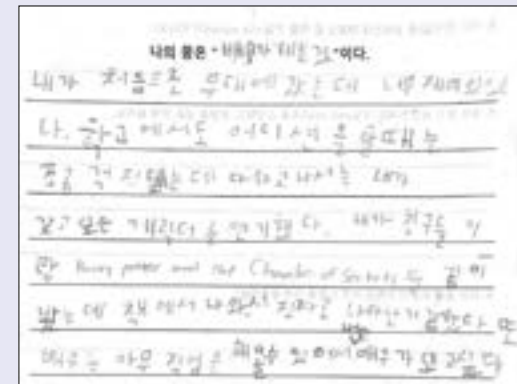 나의 꿈은 "배우가 되는 것"이다.
내가 처음으로 무대에 갔는데 너무 재미있었
다. 학교에서도 어디 선 을 할때는
조금 걱정 됐는데 다하고 나서는 내가
갖고 싶은 캐릭터를 연기했다. 내가 친구들 이
랑 Harry potter and the Chamber of Secrets 를 같이
봤는데 책에서 나와서 진짜
배우는 아무 직업을 해볼수 있어서 배우가 되고싶다